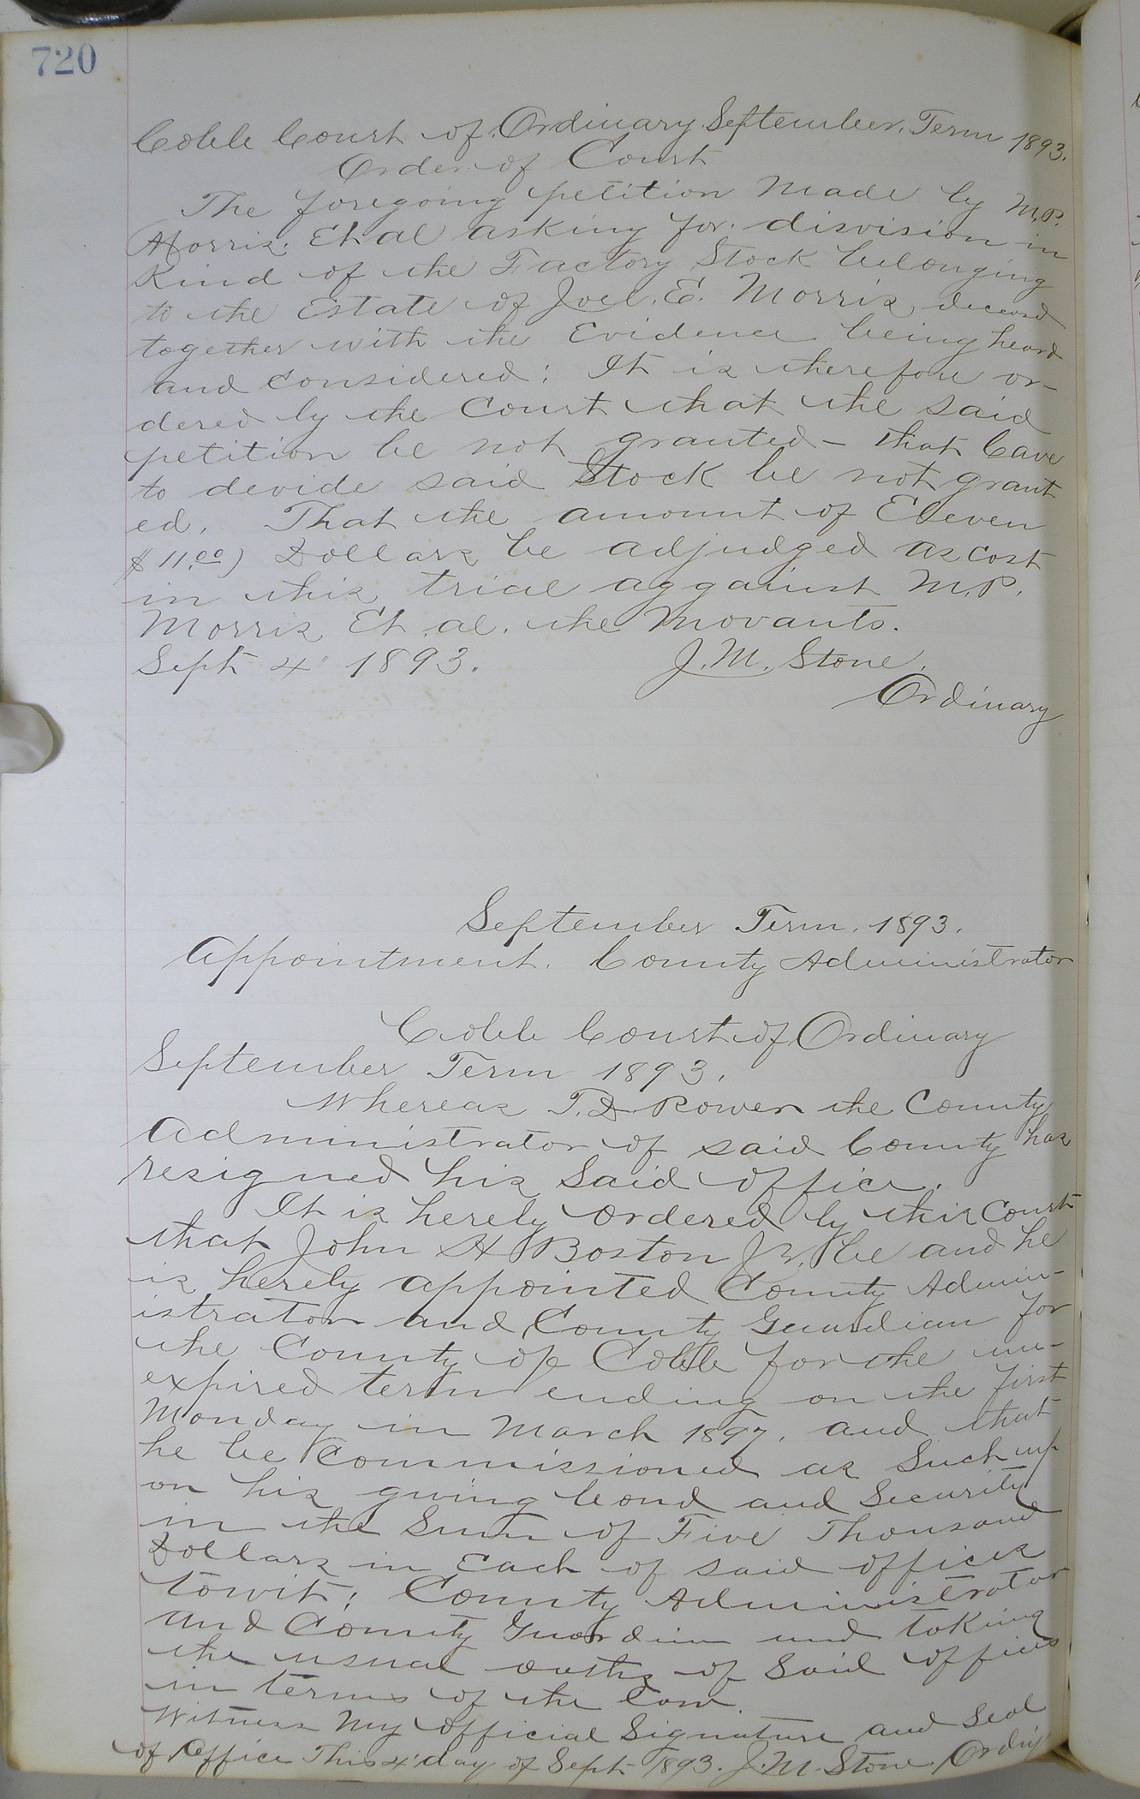 720
Cobb Court of Ordinary September Term 1893.
Order of Court
The foregoing petition made by M.P.
Morris. Et al asking for disvision in
Kind of the Factory Stock belonging
to the Estate of Joel. E. Morris, deceasd
together with the Evidence being heard
and considered; It is therefore or-
dered by the Court that the said
petition be not granted - that leave
to devide said Stock be not grant
ed. That the amount of Eleven
$11.00) Dollars be adjudged as cost
in this trial aggainst M.P.
Morris Et. al. the Movants.
Sept 4 1893. J.M. Stone.
Ordinary
September Term. 1893.
Appointment. County Administrator
Cobb Court of Ordinary
September Term 1893.
Whereas T.D. Power the County
Administrator of said County has
resigned his said office.
It is hereby ordered by this Court
that John H Boston Jr. be and he
is hereby appointed County Admin-
istrator and County Guardian for
the County of Cobb for the un-
expired term ending on the first
Monday in March 1897. and that
he be Commissioned as Such up
on his giving bond and Security
in the Sum of Five Thousand
Dollars in Each of said offices
towit; County Administrator
and County Guardian and taking
the usual oaths of Said offices
in terms of the law.
Witness My official Signature and Seal
of office This 4' day of Sept 1893. J.M. Stone Ordi'y